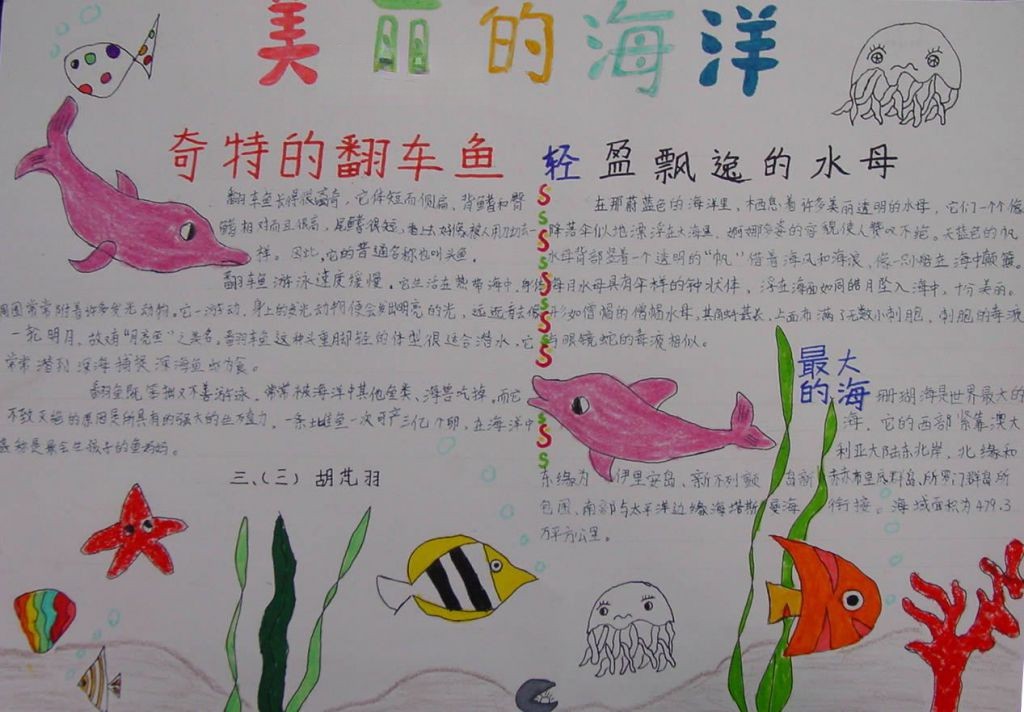 美丽的海洋
奇特的翻车鱼
翻车鱼长得很离奇，它体短而侧扁、背鳍和臀
鳍相对而且很高，尾鳍很短，看上去好像被人用刀切去一
样。因此，它的普通名称也叫头鱼。
翻车鱼游泳速度缓慢。它生活在热带海中，身体
周围常常附着许多发光动物。它一游动，身上的发光动物便会发出明亮的光，远远看去像
一轮明月，故有"月亮鱼"之美名。翻车鱼这种头重脚轻的体型很适合潜水，它
常常潜到深海捕捉深海鱼虾为食。
翻鱼既笨拙又不善游泳，常常被海洋中其他鱼类、海兽吃掉。而它
不致灭绝的原因是所具有的强大的生殖力，一条雌鱼一次可产三亿个卵，在海洋中
是最会生孩子的鱼妈妈。
三、（三） 胡芃羽
S
S
S
S
S
S
S
S
S
S
S
S
S
轻盈飘逸的水母
在那蔚蓝色的海洋里，栖息着许多美丽透明的水母，它们一个个像
降落伞似地漂浮在大海里，婀娜多姿的容貌使人赞叹不绝。天蓝色的帆
水母背部竖着一个透明的"帆"借着海风和海浪，像一只小船在海中颠簸。
海月水母具有伞样的钟状体，浮在海面如同皓月坠入海中，十分美丽。
形如僧帽的僧帽水母，其触手甚长，上面布满了无数小刺胞，刺胞的毒液
与眼镜蛇的毒液相似。
最大
的海
珊瑚海是世界最大的
海，它的西部紧靠澳大
利亚大陆东北岸，北缘和
东缘为伊里安岛、新不列颠岛、所罗门群岛所
包围，南部与太平洋边缘海塔斯曼海衔接。海域面积为479.3
万平方公里。